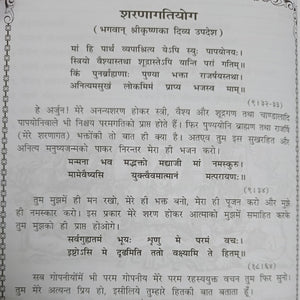 शरणागतियोग
( भगवान् श्रीकृष्णका दिव्य उपदेश )
मां हि पार्थ व्यपाश्रित्य येऽपि स्युः पापयोनयः।
स्त्रियो वैश्यास्तथा शूद्रास्तेऽपि यान्ति परां गतिम्॥
किं पुनर्ब्राह्मणाः पुण्या भक्ता राजर्षयस्तथा।
अनित्यमसुखं लोकमिमं प्राप्य भजस्व माम्॥
(९।३२-३३)
हे अर्जुन! मेरे अनन्यशरण होकर स्त्री, वैश्य और शूद्रगण तथा चाण्डालादि
पापयोनिवाले भी निश्चय परमगतिको प्राप्त होते हैं। फिर पुण्ययोनि ब्राह्मण तथा राजर्षि
(मेरे शरणागत) भक्तोंकी तो बात ही क्या है। अतएव तुम इस सुखरहित और
अनित्य मनुष्यजन्मको पाकर निरन्तर मेरा ही भजन करो।
मन्मना भव मद्भक्तो मद्याजी मां नमस्कुरु।
मामेवैष्यसि युक्त्वैवमात्मानं मत्परायणः॥
(९।३४)
तुम मुझमें ही मन रखो, मेरे ही भक्त बनो, मेरा ही पूजन करो और मुझे
ही नमस्कार करो। इस प्रकार मेरे शरण होकर आत्माको मुझमें समाहित करके
तुम मुझको ही प्राप्त होओगे।
सर्वगुह्यतमं भूयः शृणु मे परमं वचः।
इष्टोऽसि मे दृढमिति ततो वक्ष्यामि ते हितम्॥
(१८।६४)
सब गोपनीयोंमें भी परम गोपनीय मेरे परम रहस्ययुक्त वचन तुम फिर सुनो।
तुम मेरे अत्यन्त प्रिय हो, इसीलिये तुम्हारे हितकी बात बताता हूँ।